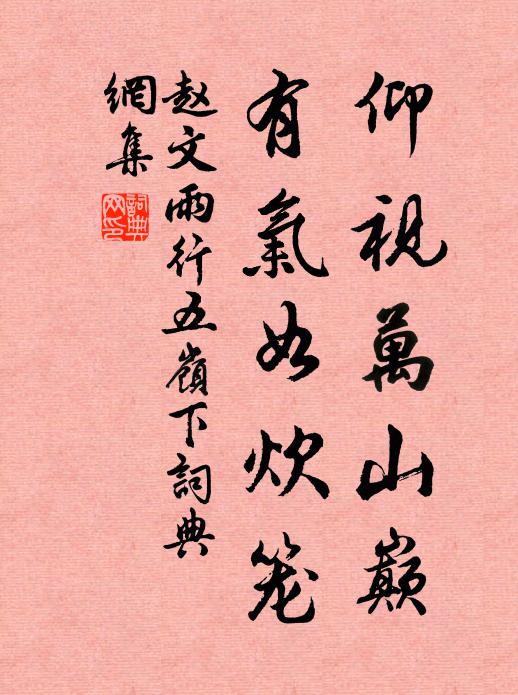 仰視萬山巔
有氣如炊笼
赵文雨行五嶺下詞典
網集
詞典
网印